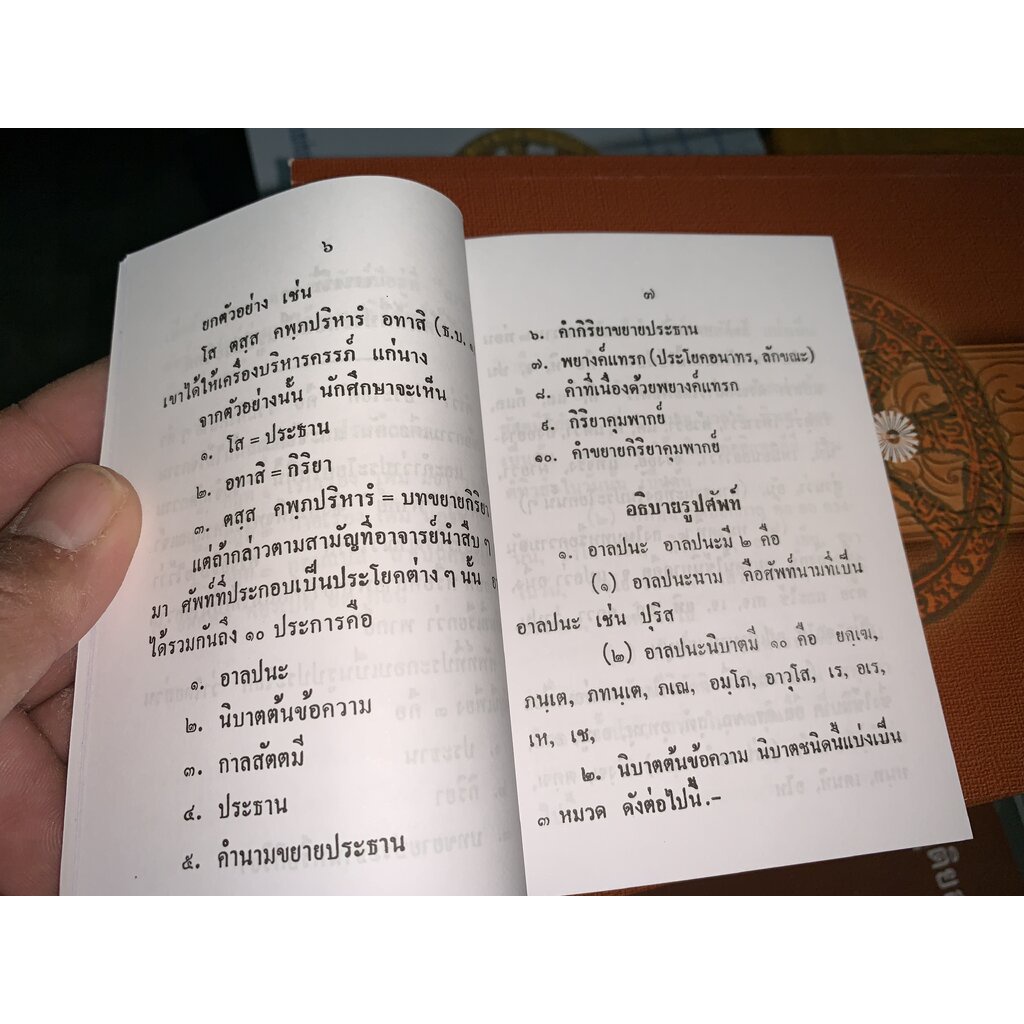 ๖
ยกตัวอย่าง เช่น
โส ตสฺส คพฺภปริหารํ อทาสิ (ธ.บ.
เขาได้ให้เครื่องบริหารครรภ์ แก่นาง
จากตัวอย่างนั้น นักศึกษาจะเห็น
๑. โส = ประธาน
๒. อทาสิ = กิริยา
๓. ตสฺส คพฺภปริหารํ = บทขยายกิริยา
แต่ถ้ากล่าวตามสามัญที่อาจารย์นำสืบ ๆ
มา ศัพท์ที่ประกอบเป็นประโยคต่าง ๆ นั้น
ได้รวมกันถึง ๑๐ ประการคือ
๑. อาลปนะ
๒. นิบาตต้นข้อความ
๓. กาลสัตตมี
๔. ประธาน
๕. คำนามขยายประธาน
๗
๖. คำกิริยาขยายประธาน
๗. พยางค์แทรก (ประโยคอนาทร, ลักขณะ)
๘. คำที่เนื่องด้วยพยางค์แทรก
๙. กิริยาคุมพากย์
๑๐. คำขยายกิริยาคุมพากย์
อธิบายรูปศัพท์
๑. อาลปนะ อาลปนะมี ๒ คือ
(๑) อาลปนะนาม คือศัพท์นามที่เป็น
อาลปนะ เช่น ปุริส
(๒) อาลปนะนิบาตมี ๑๐ คือ ยคฺเฆ,
ภนฺเต, ภทนฺเต, ภเณ, อมฺโภ, อาวุโส, เร, อเร,
เห, เช,
๒. นิบาตต้นข้อความ นิบาตชนิดนี้แบ่งเป็น
๓ หมวด ดังต่อไปนี้.-